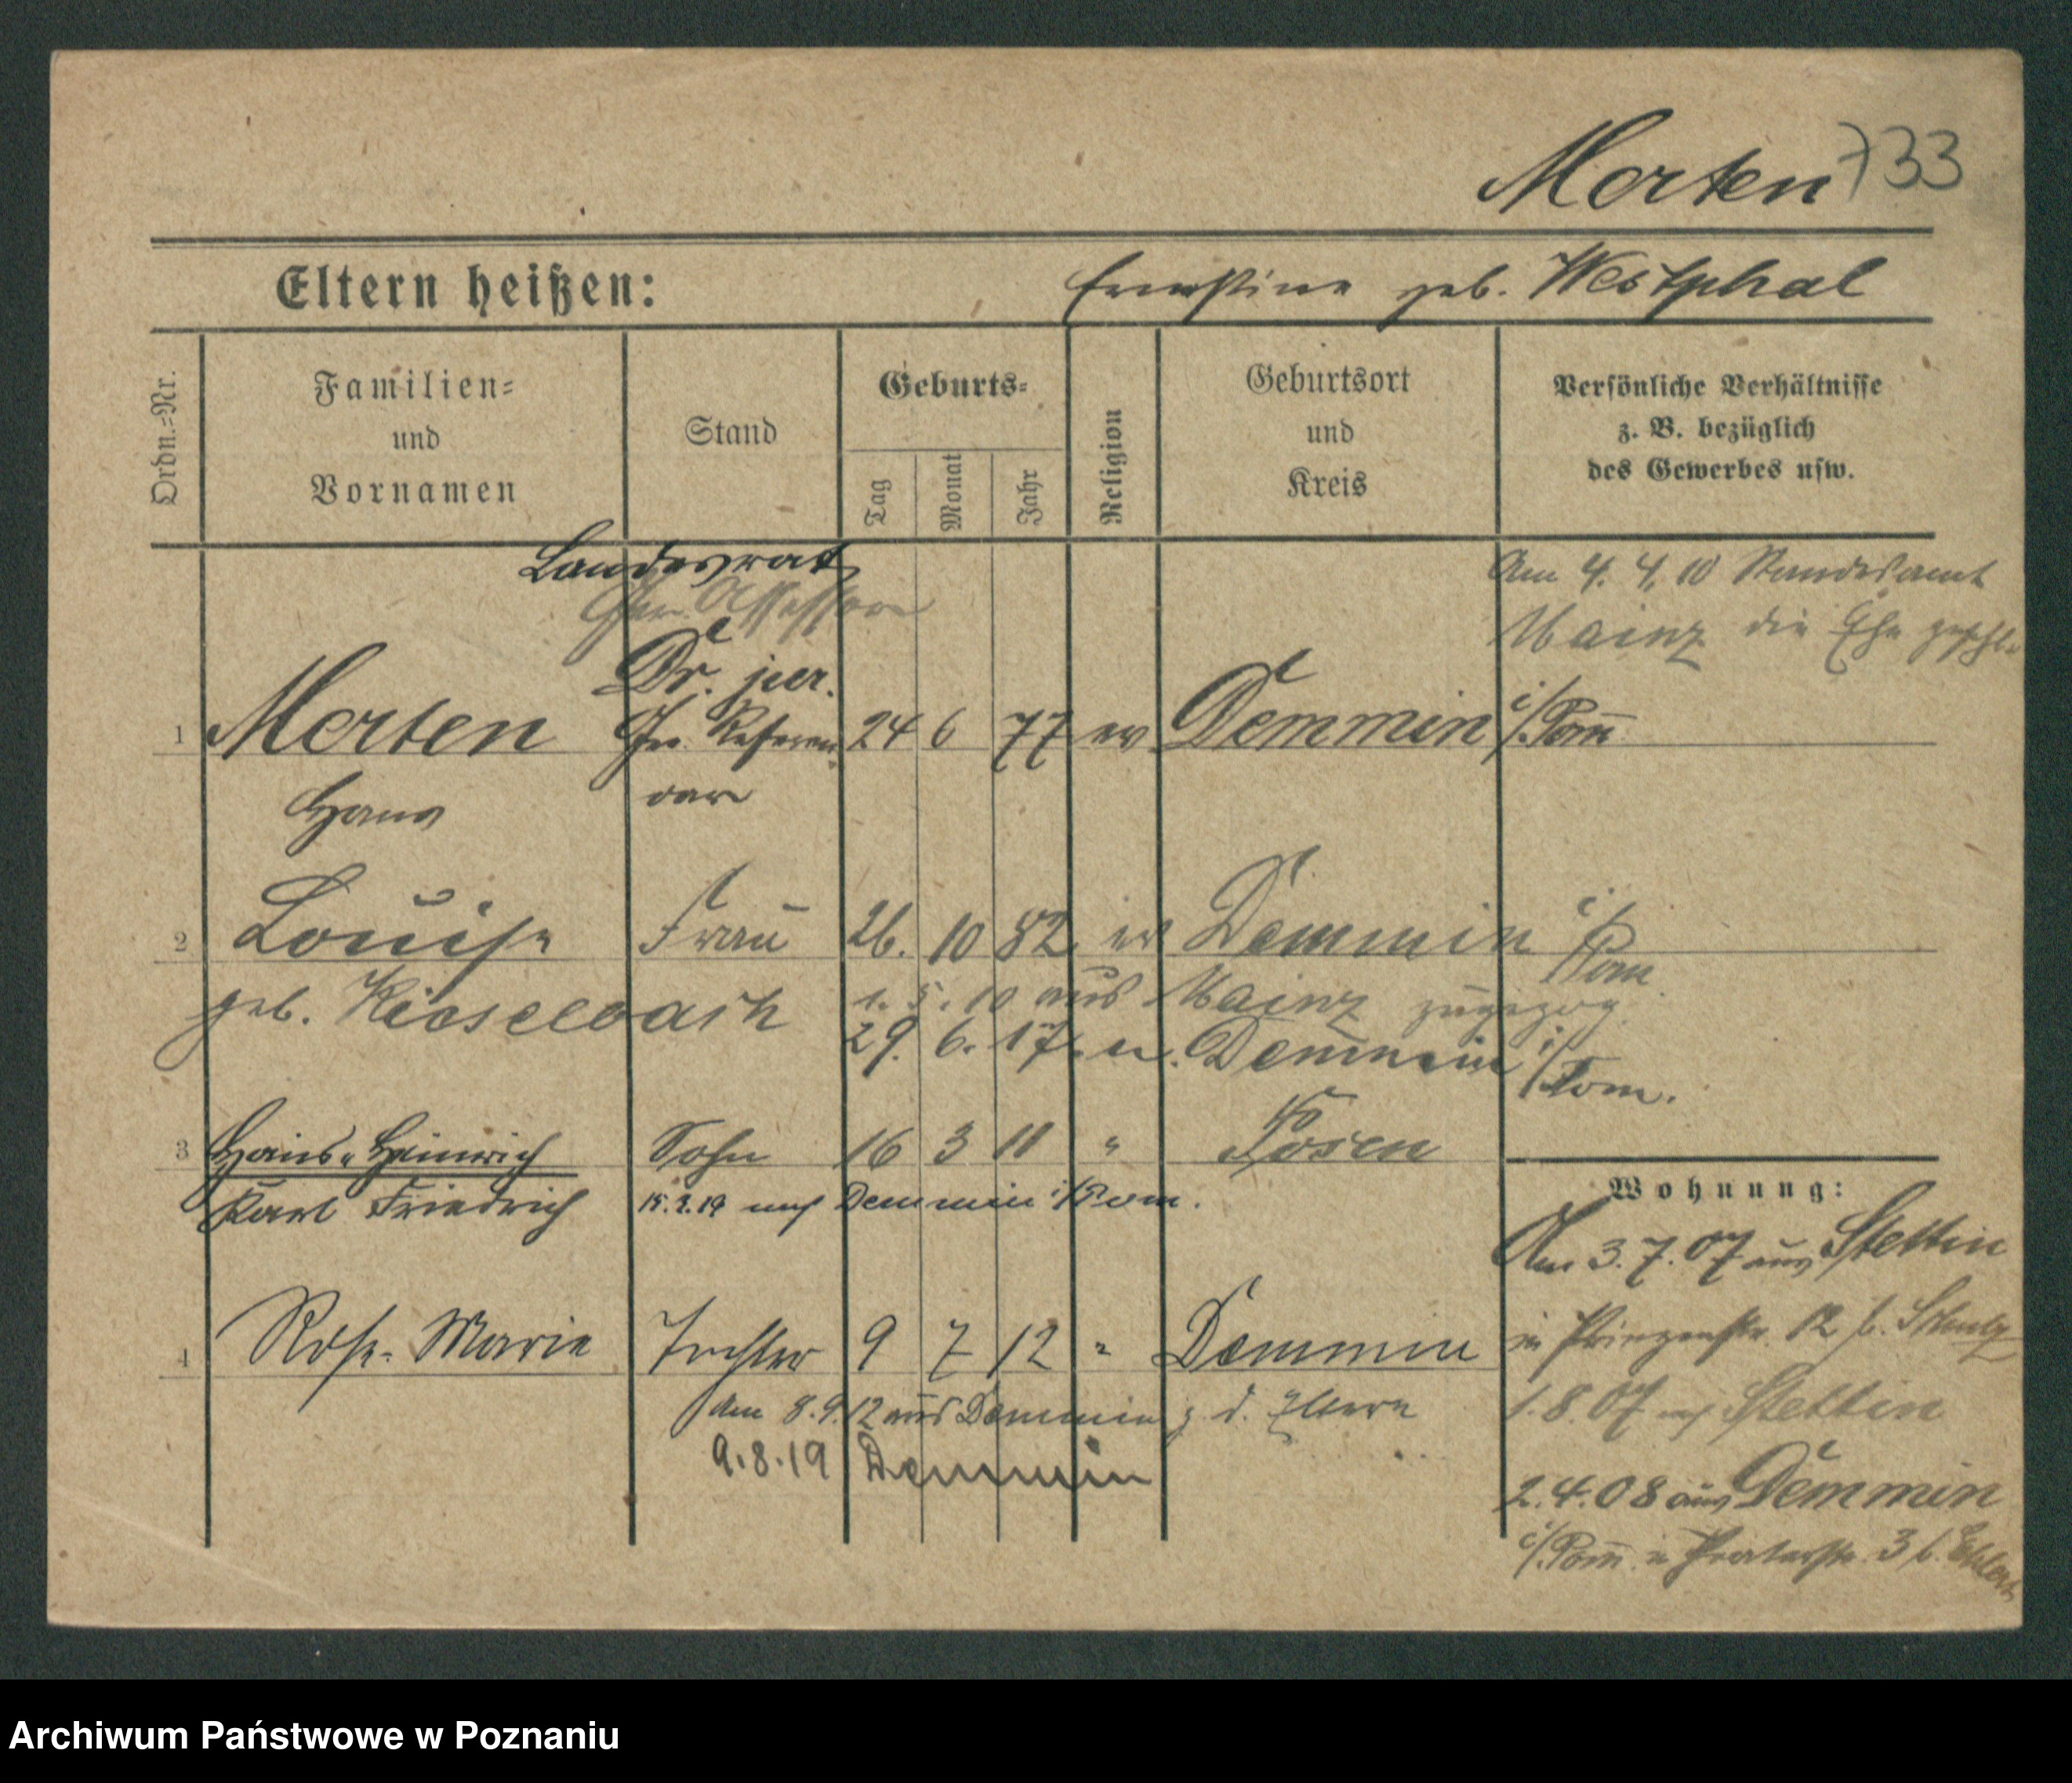 Morten 733
Eltern heißen: Ernestine geb. Westphal
Ordn.-Nr.
Familien-
und
Vornamen
Stand
Geburts-
Tag
Monat
Jahr
Religion
Geburtsort
und
Kreis
Persönliche Verhältnisse
z. B. bezüglich
des Gewerbes usw.
Landesrat
Assessor
Am 4. 4. 10 Standesamt
Mainz die Ehe geschl.
Dr. jur.
1 Morten Referen 24 6 77 ev Demmin i/Pom
Hans dar
2 Louise Frau 26. 10 82 ev Demmin i/Pom
geb. Kieselbach 1. 5. 10 aus Mainz zugezog.
29. 6. 17. n. Demmin i/Pom.
3 Hans-Heinrich Sohn 16 3 11 " Posen
Karl Friedrich 15.2.19 nach Demmin i/Pom.
4 Rose-Marie Tochter 9 7 12 " Demmin
Am 8.9.12 aus Demmin z. d. Eltern
9.8.19 Demmin
Wohnung:
Am 3.7.07 aus Stettin
in Prinzenstr. 12 b. Schulz
1.8.07 nach Stettin
2.4.08 aus Demmin
i/Pom. in 3 b.
Archiwum Państwowe w Poznaniu